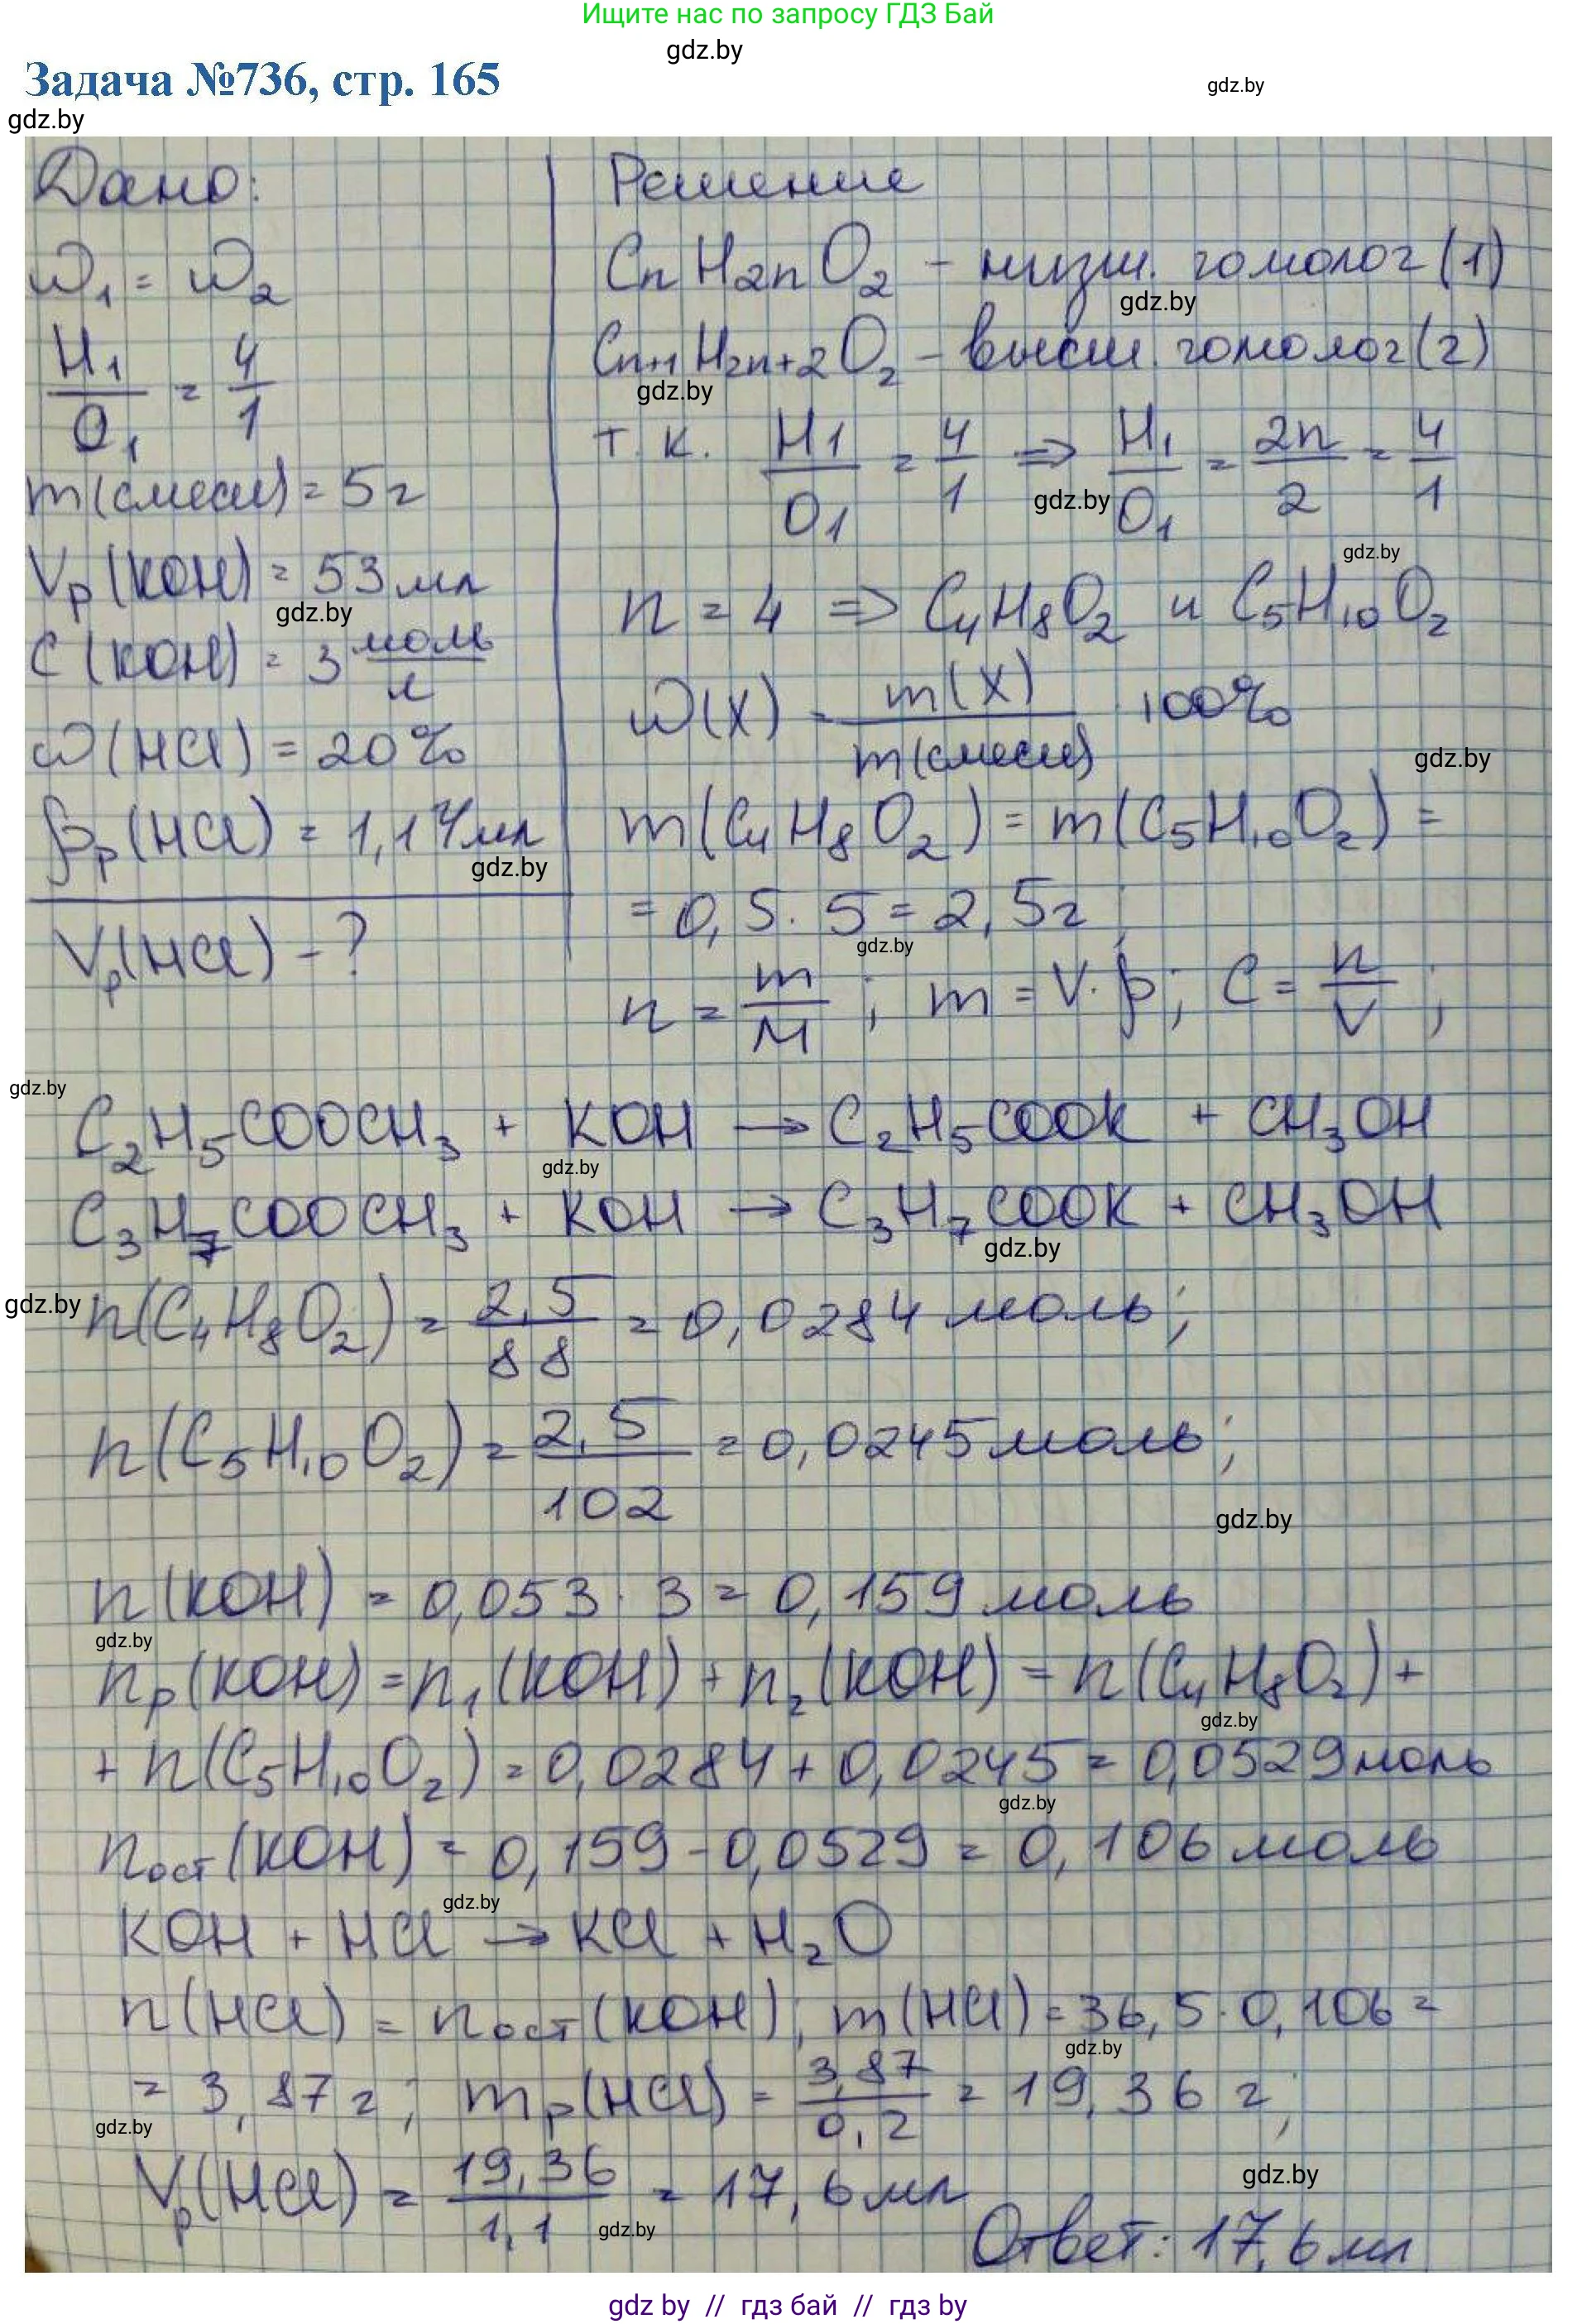 Ищите нас по запросу ГДЗ Бай
gdz.by
Задача №736, стр. 165
gdz.by
gdz.by
Дано:
ω₁ = ω₂
H₁/O₁ = 4/1
m(смеси) = 5г
Vр(KOH) = 53мл
gdz.by
C(KOH) = 3 моль/л
ω(HCl) = 20%
ρр(HCl) = 1,14мл
gdz.by
Vр(HCl) - ?
Решение
CnH2nO₂ - низш. гомолог (1)
gdz.by
Cn+1H2n+2O₂ - высш. гомолог (2)
gdz.by
т.к. H₁/O₁ = 4/1 => H₁/O₁ = 2n/2 = 4/1
gdz.by
gdz.by
n = 4 => C₄H₈O₂ и C₅H₁₀O₂
ω(X) = m(X)/m(смеси) · 100%
gdz.by
m(C₄H₈O₂) = m(C₅H₁₀O₂) =
= 0,5 · 5 = 2,5г;
gdz.by
n = m/M ; m = V·ρ; C = n/V ;
gdz.by
C₂H₅COOCH₃ + KOH → C₂H₅COOK + CH₃OH
gdz.by
C₃H₇COOCH₃ + KOH → C₃H₇COOK + CH₃OH
gdz.by
gdz.by
n(C₄H₈O₂) = 2,5/88 = 0,0284 моль;
n(C₅H₁₀O₂) = 2,5/102 = 0,0245 моль;
gdz.by
n(KOH) = 0,053 · 3 = 0,159 моль
gdz.by
nр(KOH) = n₁(KOH) + n₂(KOH) = n(C₄H₈O₂) +
gdz.by
+ n(C₅H₁₀O₂) = 0,0284 + 0,0245 = 0,0529 моль
gdz.by
nост(KOH) = 0,159 - 0,0529 = 0,106 моль
gdz.by
KOH + HCl → KCl + H₂O
n(HCl) = nост(KOH); m(HCl) = 36,5 · 0,106 =
gdz.by
= 3,87г; mр(HCl) = 3,87/0,2 = 19,36 г;
gdz.by
Vр(HCl) = 19,36/1,1 = 17,6 мл
gdz.by
gdz.by
Ответ: 17,6 мл
gdz by // гдз бай // гдз by